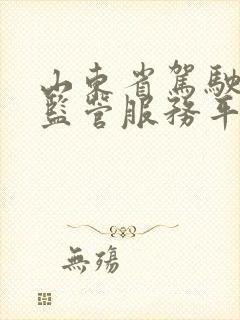 山東省駕駛
監管服務平
無殤